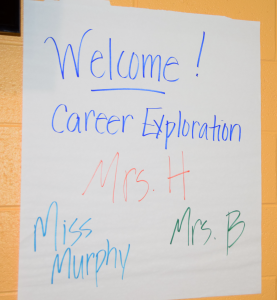 Welcome!
Career Exploration
Mrs. H
Miss Mrs. B
Murphy